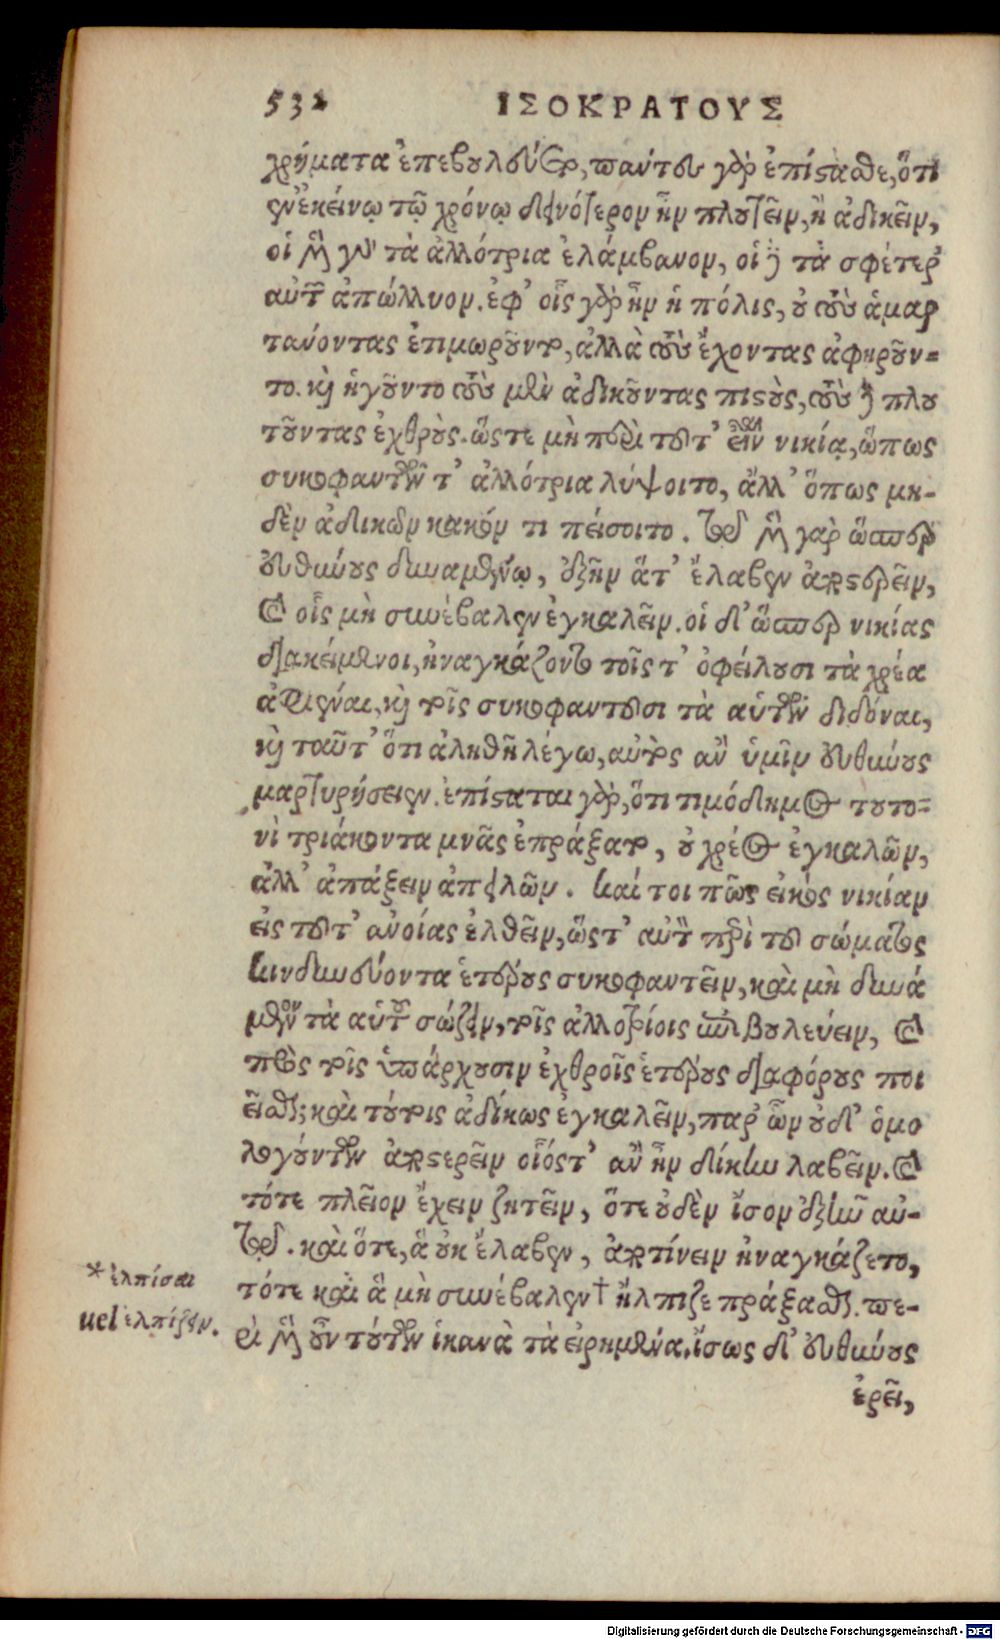 532 ΙΣΟΚΡΑΤΟΥΣ
χρήματα ἐπεβουλεύετο, πάντες γὰρ ἐπίστασθε, ὅτι
ἐν ἐκείνῳ τῷ χρόνῳ δεινότερον ἦν πλουτεῖν, ἢ ἀδικεῖν,
οἱ μὲν γὰρ τὰ ἀλλότρια ἐλάμβανον, οἱ δὲ τὰ σφέτερ᾽
αὐτῶν ἀπώλλυον. ἐφ᾽ οἷς γὰρ ἦν ἡ πόλις, οὐ τοὺς ἁμαρ
τάνοντας ἐτιμωροῦντο, ἀλλὰ τοὺς ἔχοντας ἀφῃροῦν=
το. καὶ ἡγοῦντο τοὺς μὲν ἀδικοῦντας πιστοὺς, τοὺς δὲ πλου
τοῦντας ἐχθρούς. ὥστε μὴ περὶ τοῦτ᾽ εἶναι νικίᾳ, ὅπως
συκοφαντῶν τ᾽ ἀλλότρια λήψοιτο, ἀλλ᾽ ὅπως μη-
δὲν ἀδικῶν κακόν τι πείσοιτο. τῷ μὲν γὰρ ὥσπερ
εὐθύνους δυναμένῳ, ἐξῆν ἅτ᾽ ἔλαβεν ἀποστερεῖν,
καὶ οἷς μὴ συνέβαλεν ἐγκαλεῖν. οἱ δ᾽ ὥσπερ νικίας
διακείμενοι, ἠναγκάζοντο τοῖς τ᾽ ὀφείλουσι τὰ χρέα
ἀφιέναι, καὶ τοῖς συκοφαντοῦσι τὰ αὑτῶν διδόναι,
καὶ ταῦτ᾽ ὅτι ἀληθῆ λέγω, αὐτὸς ἂν ὑμῖν εὐθύνους
μαρτυρήσειεν. ἐπίσταται γὰρ, ὅτι τιμόδημος τουτο=
νὶ τριάκοντα μνᾶς ἐπράξατο, οὐ χρέος ἐγκαλῶν,
ἀλλ᾽ ἀπάξειν ἀπειλῶν. καί τοι πῶς εἰκὸς νικίαν
εἰς τοῦτ᾽ ἀνοίας ἐλθεῖν, ὥστ᾽ αὐτὸν περὶ τοῦ σώματος
κινδυνεύοντα ἑτέρους συκοφαντεῖν, καὶ μὴ δυνά
μενον τὰ αὑτοῦ σώζειν, τοῖς ἀλλοτρίοις ἐπιβουλεύειν, καὶ
πρὸς τοῖς ὑπάρχουσιν ἐχθροῖς ἑτέρους διαφόρους ποι
εῖσθαι; καὶ τούτοις ἀδίκως ἐγκαλεῖν, παρ᾽ ὧν οὐδ᾽ ὁμο
λογούντων ἀποστερεῖν οἷόστ᾽ ἂν ἦν δίκην λαβεῖν. καὶ
τότε πλεῖον ἔχειν ζητεῖν, ὅτε οὐδὲν ἴσον ἐξῆν αὐ-
τῷ. καὶ ὅτε, ἃ οὐκ ἔλαβεν, ἀποτίνειν ἠναγκάζετο,
τότε καὶ ἃ μὴ συνέβαλεν † ἤλπιζε πράξασθαι. πε-
ρὶ μὲν οὖν τούτων ἱκανὰ τὰ εἰρημένα. ἴσως δ᾽ εὐθύνους
ἐρεῖ,
* ἐλπίσαι
uel ἐλπίζειν.
Digitalisierung gefördert durch die Deutsche Forschungsgemeinschaft - DFG